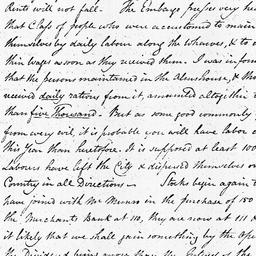 Rents will not fall — The Embargo presses very he
that Class of people who were accustomed to main
themselves by daily labour along the Wharves, & to
their wages as soon as they received them. I was infor
that the persons maintained in the Almshouse, & tho
received daily rations from it, amounted altogether to
than five Thousand. But as some good commonly
from every evil, it is probable you will have labor
this year than heretofore. It is supposed at least 100
Labourers have left the City & dispersed themselves o
Country in all Directions — Stocks begin again t
have joined with Mr in the purchase of 150
the Merchants Bank at 110, they are now at 111 &
it likely that we shall gain something by the Ope
the Dividend being more than the Interest of the